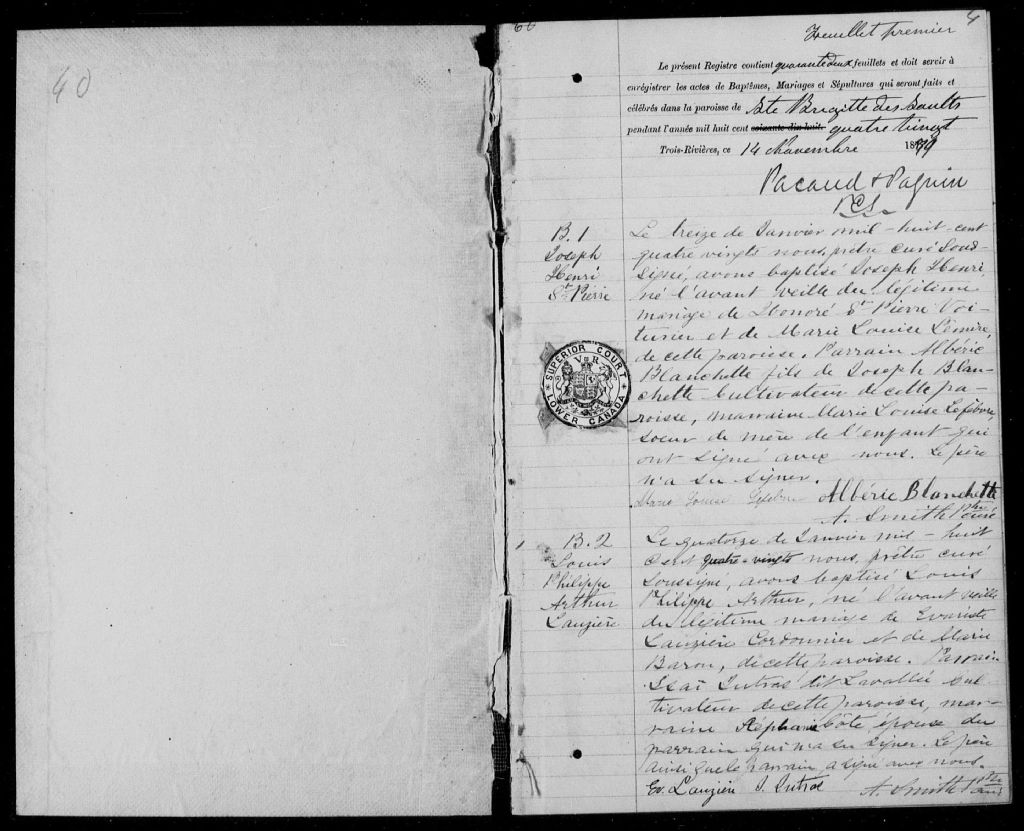 40
60
Feuillet premier
Le présent Registre contient quarante deux feuillets et doit servir à
enrégistrer les actes de Baptêmes, Mariages et Sépultures qui seront faits et
célébrés dans la paroisse de Ste Brigitte des Saults
pendant l'année mil huit cent soixante dix-huit quatre vingt
Trois-Rivières, ce 14 Novembre 1879
Pacaud & Paquin
P.C.S.
B. 1
Joseph
Henri
St. Pierre
Le treize de Janvier mil-huit-cent
quatre vingts nous, prêtre curé sous-
signé, avons baptisé Joseph Henri,
né l'avant veille du légitime
mariage de Honoré St Pierre Voi-
turier et de Marie Louise Lemire,
de cette paroisse. Parrain Albéric
Blanchette fils de Joseph Blan-
chette Cultivateur de cette pa-
roisse, marraine Marie Louise Lefebvre,
soeur de mère de l'enfant qui
ont signé avec nous. Le père
n'a su signer.
Marie Louise Lefebvre Albéric Blanchette
A. Smith Ptre curé
SUPERIOR COURT
V R
LOWER CANADA
B. 2
Louis
Philippe
Arthur
Lauzière
Le quatorze de Janvier mil-huit
cent quatre-vingts nous, prêtre curé
soussigné, avons baptisé Louis
Philippe Arthur, né l'avant veille
du légitime mariage de Evariste
Lauzière Cordonnier et de Marie
Baron, de cette paroisse. Parrain
Isaï Jutras dit Lavallée Cul-
tivateur de cette paroisse, mar-
raine Stéphanie Côté, épouse du
parrain qui n'a su signer. Le père
ainsi que le parrain a signé avec nous.
Ev. Lauzière I. Jutras
A. Smith Ptre curé